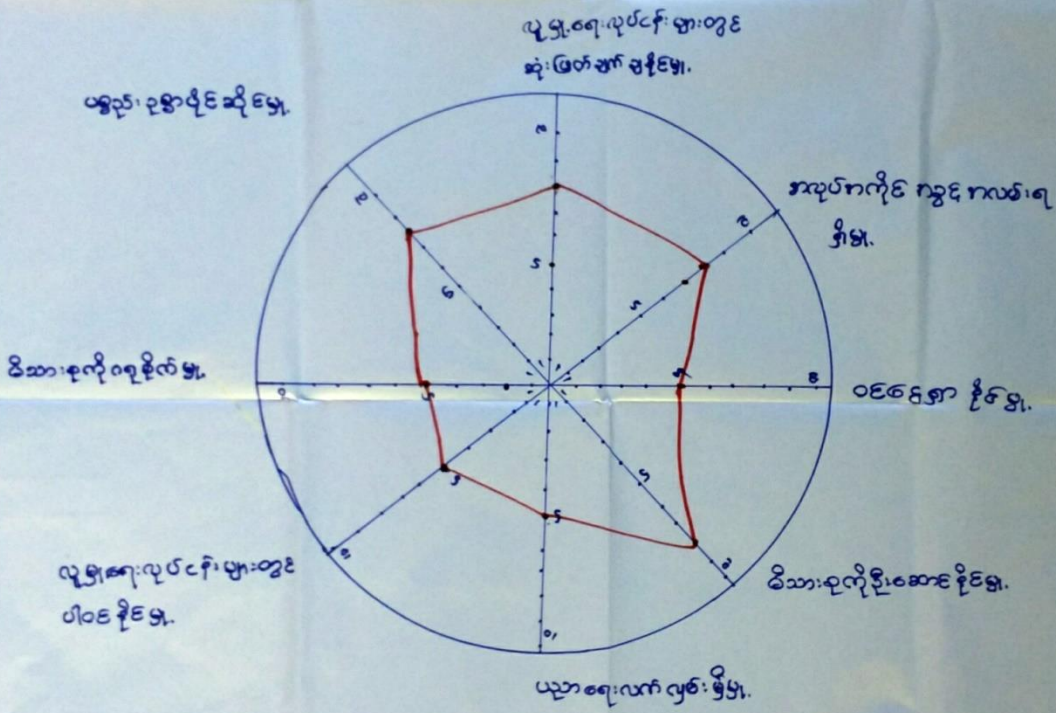 လူမှုရေးလုပ်ငန်းများတွင်
ဆုံးဖြတ်ချက်ချနိုင်မှု.
အလုပ်အကိုင် အခွင့်အလမ်းရ
ရှိမှု.
ဝင်ငွေရှာ နိုင်မှု.
မိသားစုကိုဦးဆောင်နိုင်မှု.
ပညာရေးလက်လှမ်းမှီမှု.
လူမှုရေးလုပ်ငန်းများတွင်
ပါဝင်နိုင်မှု.
မိသားစုကိုဂရုစိုက်မှု.
ပစ္စည်းဥစ္စာပိုင်ဆိုင်မှု.